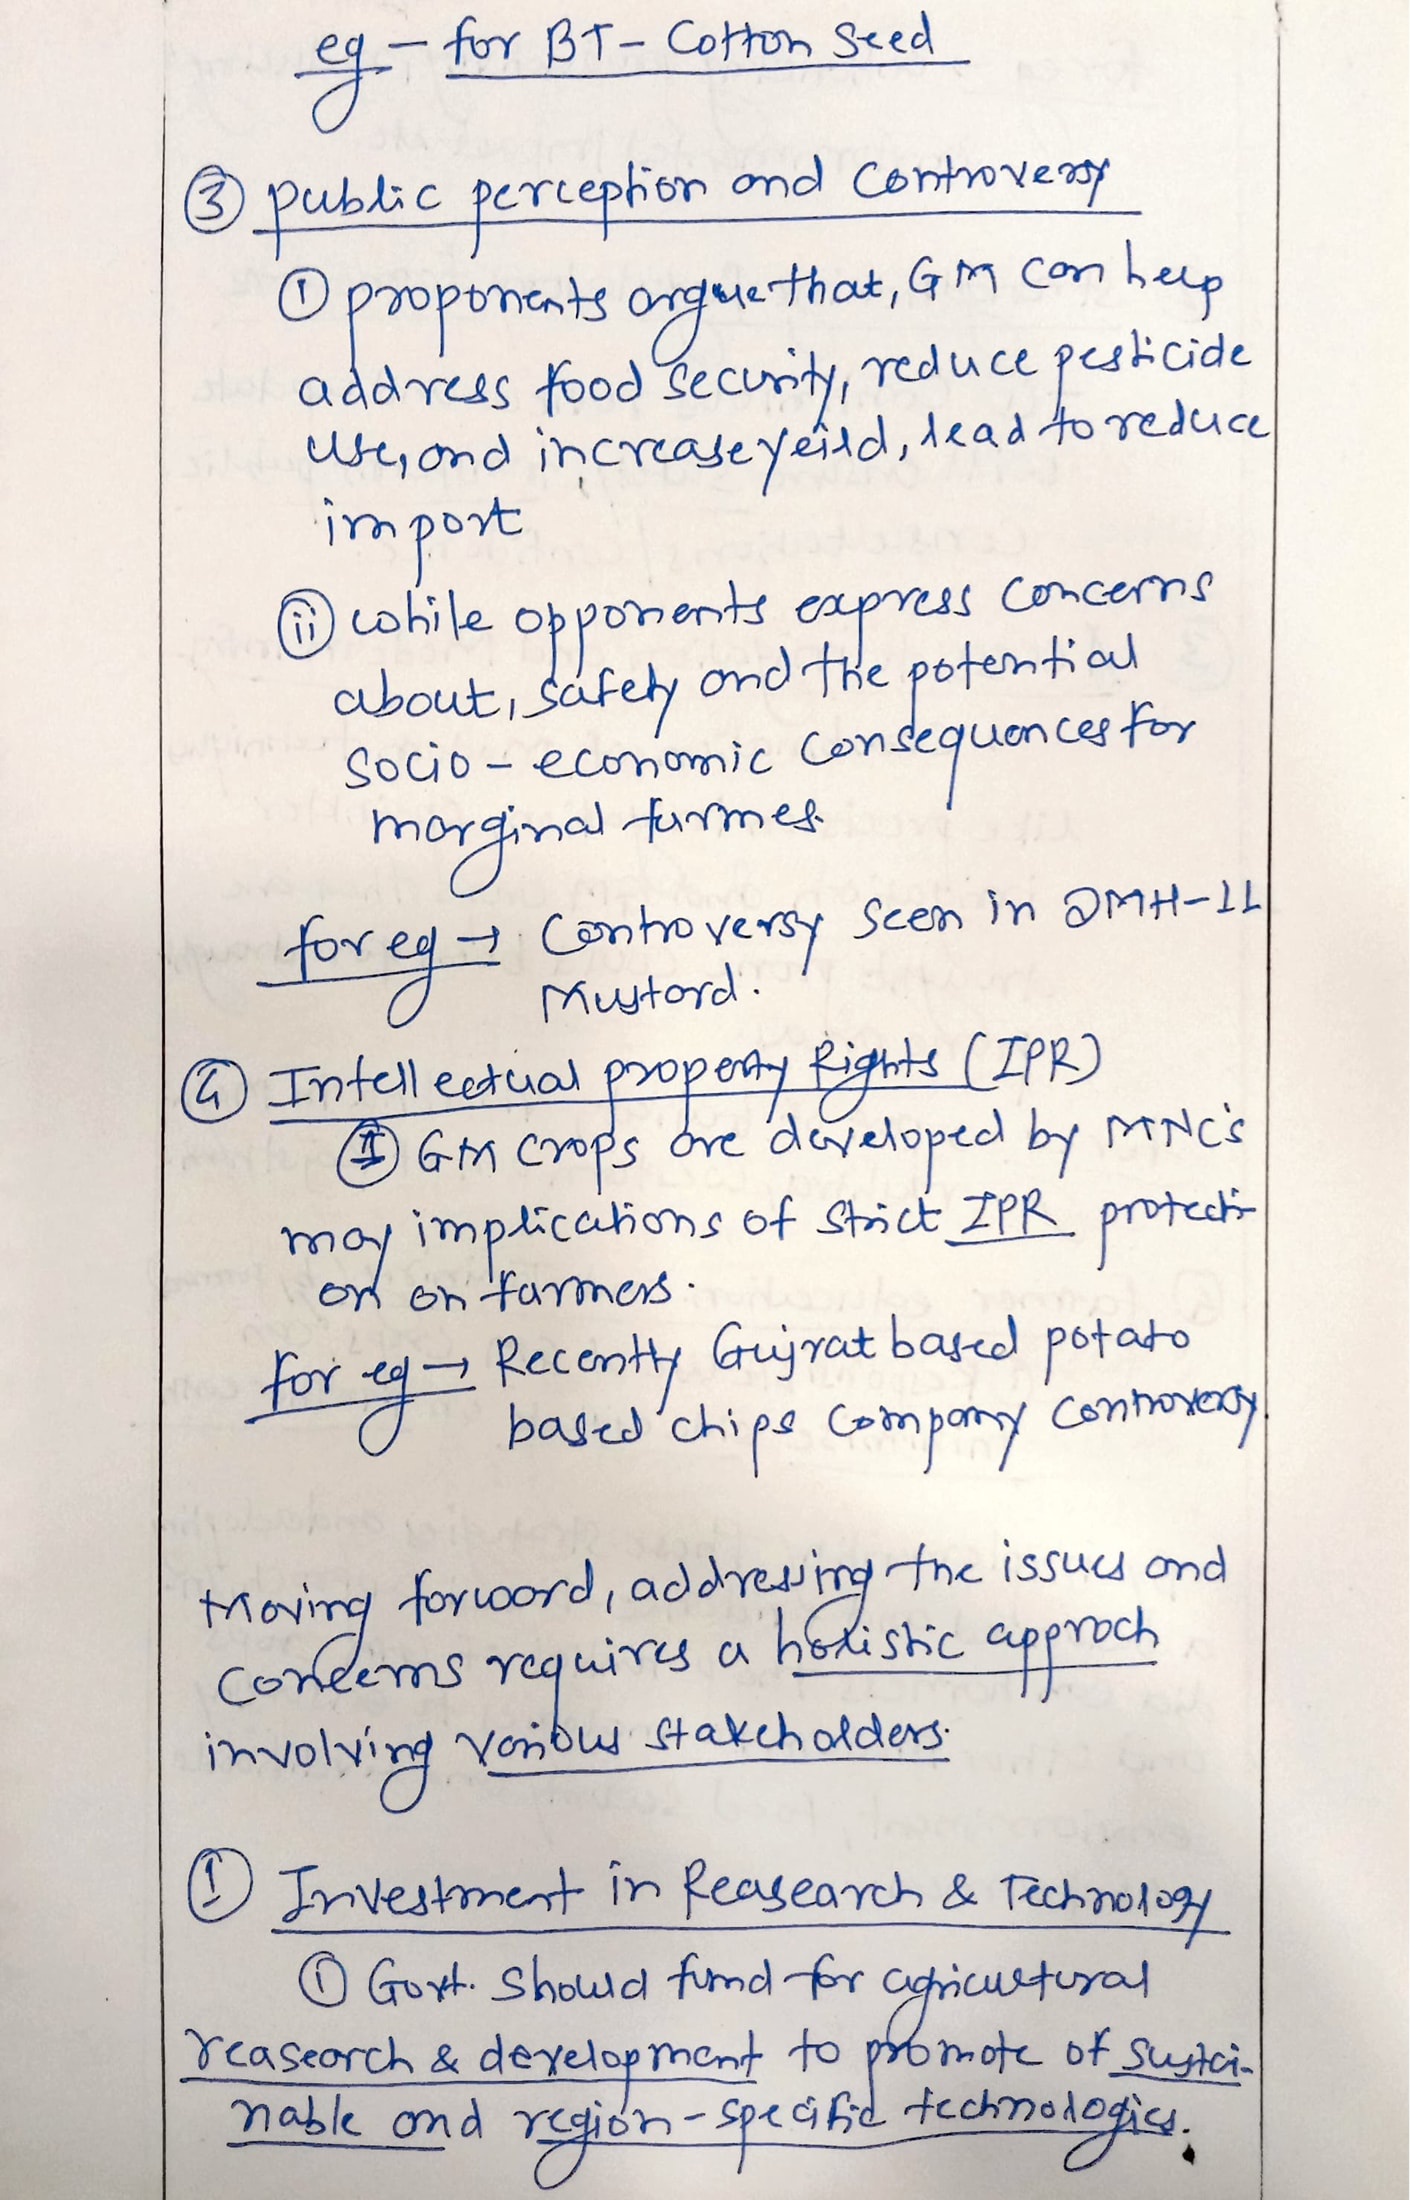 eg - for BT - Cotton Seed
③ public perception and controversy
① proponents argue that, GM can help
address food security, reduce pesticide
use, and increase yeild, lead to reduce
import
ⓘⓘ while opponents express concerns
about, safety and the potential
socio - economic consequences for
marginal farmes.
for eg → Controversy seen in DMH-11
Mustard.
④ Intellectual property Rights (IPR)
① GM crops are developed by MNC's
may implications of strict IPR protecti-
on on farmers.
for eg → Recently Gujrat based potato
based chips company controversy.
Moving forward, addressing the issues and
concerns requires a holistic approch
involving various stakeholders.
① Investment in Reasearch & Technology
① Govt. should fund for agricultural
reasearch & development to promote of sustai-
nable and region-specific technologies.